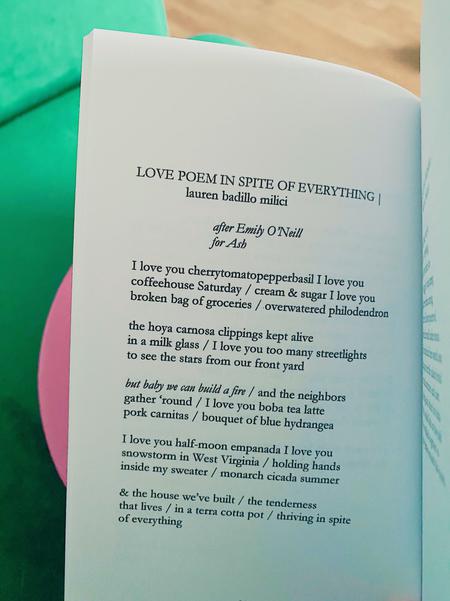 LOVE POEM IN SPITE OF EVERYTHING |
lauren badillo milici
after Emily O'Neill
for Ash
I love you cherrytomatopepperbasil I love you
coffeehouse Saturday / cream & sugar I love you
broken bag of groceries / overwatered philodendron
the hoya carnosa clippings kept alive
in a milk glass / I love you too many streetlights
to see the stars from our front yard
but baby we can build a fire / and the neighbors
gather ‘round / I love you boba tea latte
pork carnitas / bouquet of blue hydrangea
I love you half-moon empanada I love you
snowstorm in West Virginia / holding hands
inside my sweater / monarch cicada summer
& the house we've built / the tenderness
that lives / in a terra cotta pot / thriving in spite
of everything